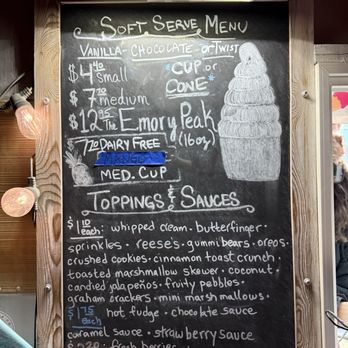 Soft Serve Menu
Vanilla - Chocolate - or Twist
$4.40 small
*Cup or Cone*
$7.20 medium
$12.95 The Emory Peak (16oz)
7.20 Dairy Free
MANGO
Med. Cup
Toppings & Sauces
$1.10 each: whipped cream · butterfinger ·
sprinkles · reese's · gummi bears · oreos ·
crushed cookies · cinnamon toast crunch ·
toasted marshmallow skewer · coconut ·
candied jalapeños · fruity pebbles ·
graham crackers · mini marshmallows ·
$1.75 each hot fudge · chocolate sauce
caramel sauce · strawberry sauce
fresh berries